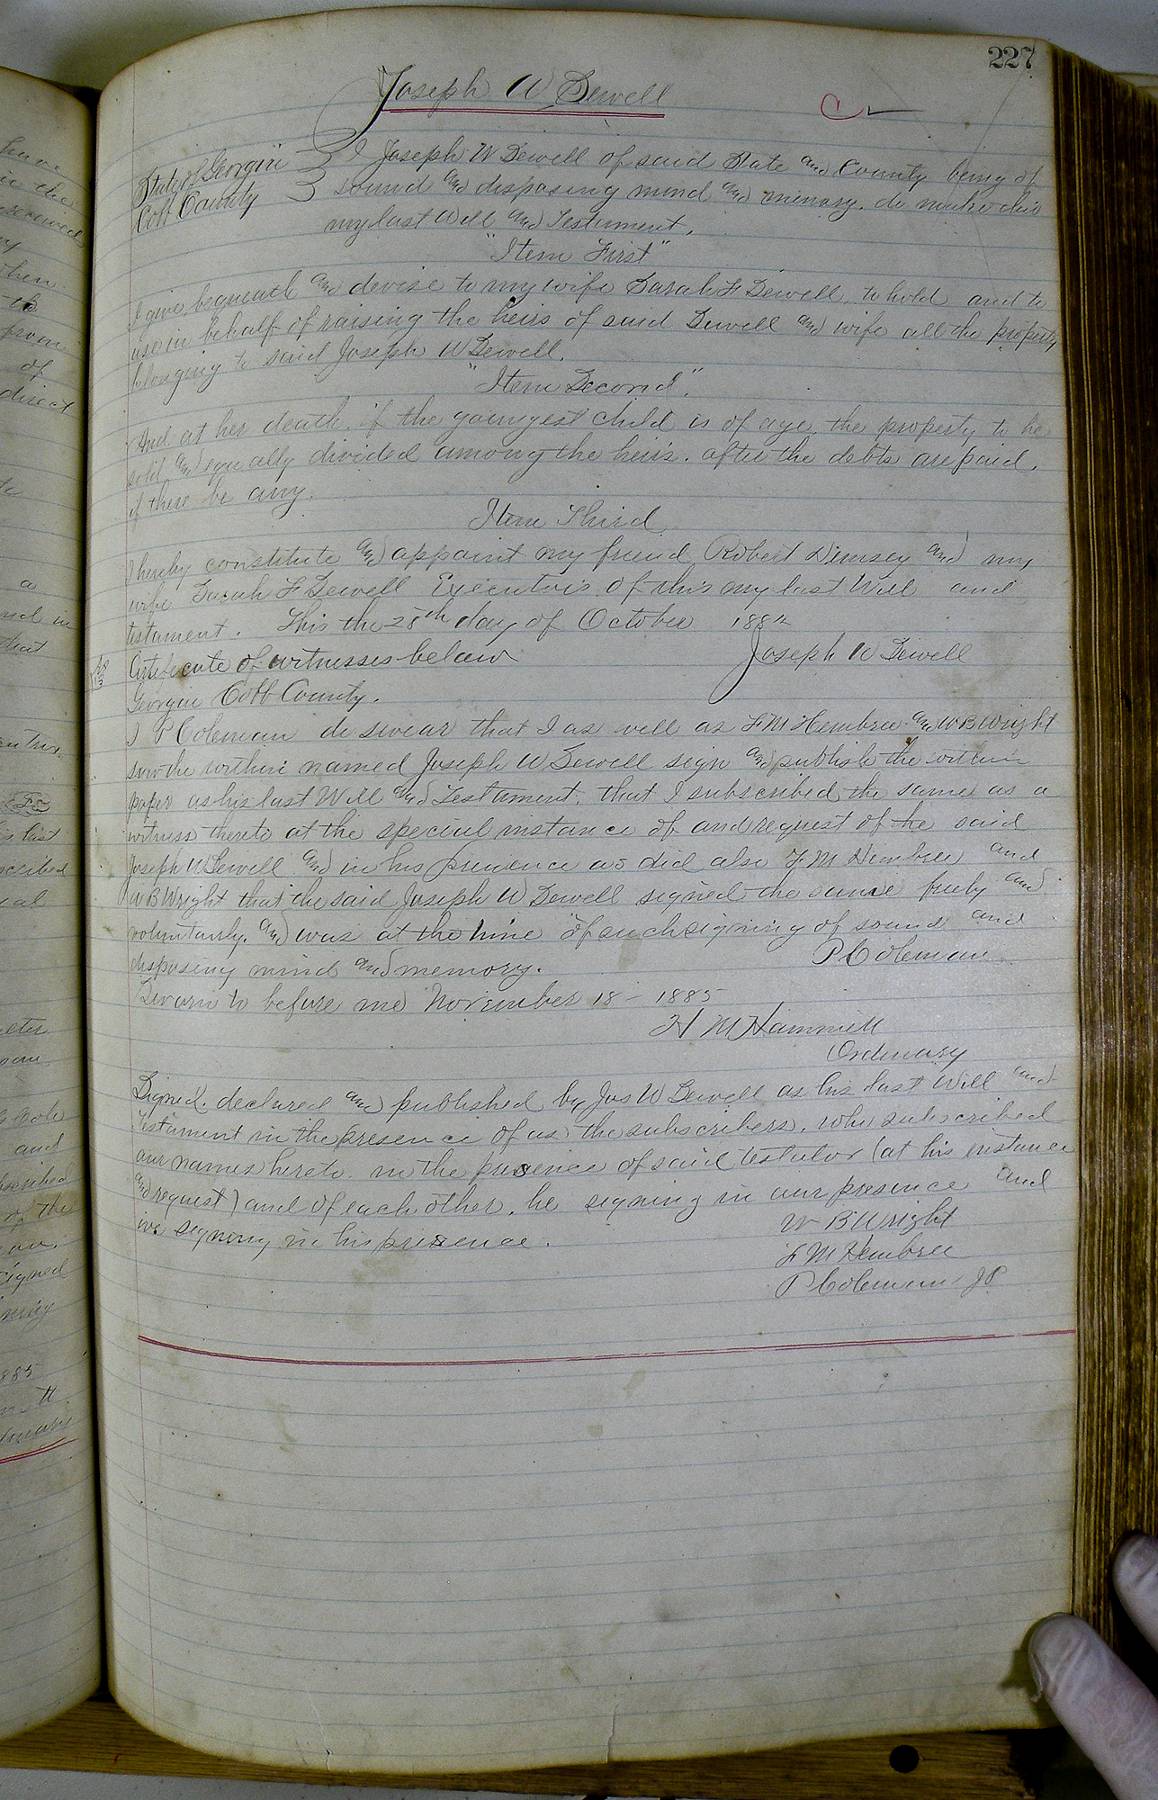 have
in the
then
prom
of
direct
a
that
last
and
of the
signed
1885
227
Joseph W Sewell
State of Georgia
Cobb County
I Joseph W Sewell of said State and County being of
sound and disposing mind and memory, do make this
my last Will and Testament.
"Item First"
I give bequeath and devise to my wife Sarah F Sewell to hold and to
use in behalf of raising the heirs of said Sewell and wife all the property
blonging to said Joseph W Sewell.
"Item Second".
And at her death if the youngest child is of age the property to be
sold and equally divided among the heirs. after the debts are paid,
if there be any.
Item Third
I hereby constitute and appoint my friend Robert Dempsey and my
wife Sarah F Sewell Executors of this my last Will and
testament. This the 28th day of October 1882
Certificate of witnesses below Joseph W Sewell
Georgia Cobb County.
I P Coleman do swear that I as well as F M Hembree and W B Wright
saw the within named Joseph W Sewell sign and publish the within
paper as his last Will and Testament, that I subscribed the same as a
witness thereto at the special instance of and request of the said
Joseph W Sewell and in his presence as did also F M Hembree and
W B Wright that the said Joseph W Sewell signed the same freely and
voluntarily, and was at the time of such signing of sound and
disposing mind and memory. P Coleman
Sworn to before me November 18 - 1885
H M Hammett
Ordinary
Signed, declared and published by Jos W Sewell as his last Will and
Testament in the presence of us the subscribers, who subscribed
our names hereto in the presence of said testator (at his instance
and request) and of each other, he signing in our presence and
we signing in his presence.
W B Wright
F M Hembree
P Coleman J P